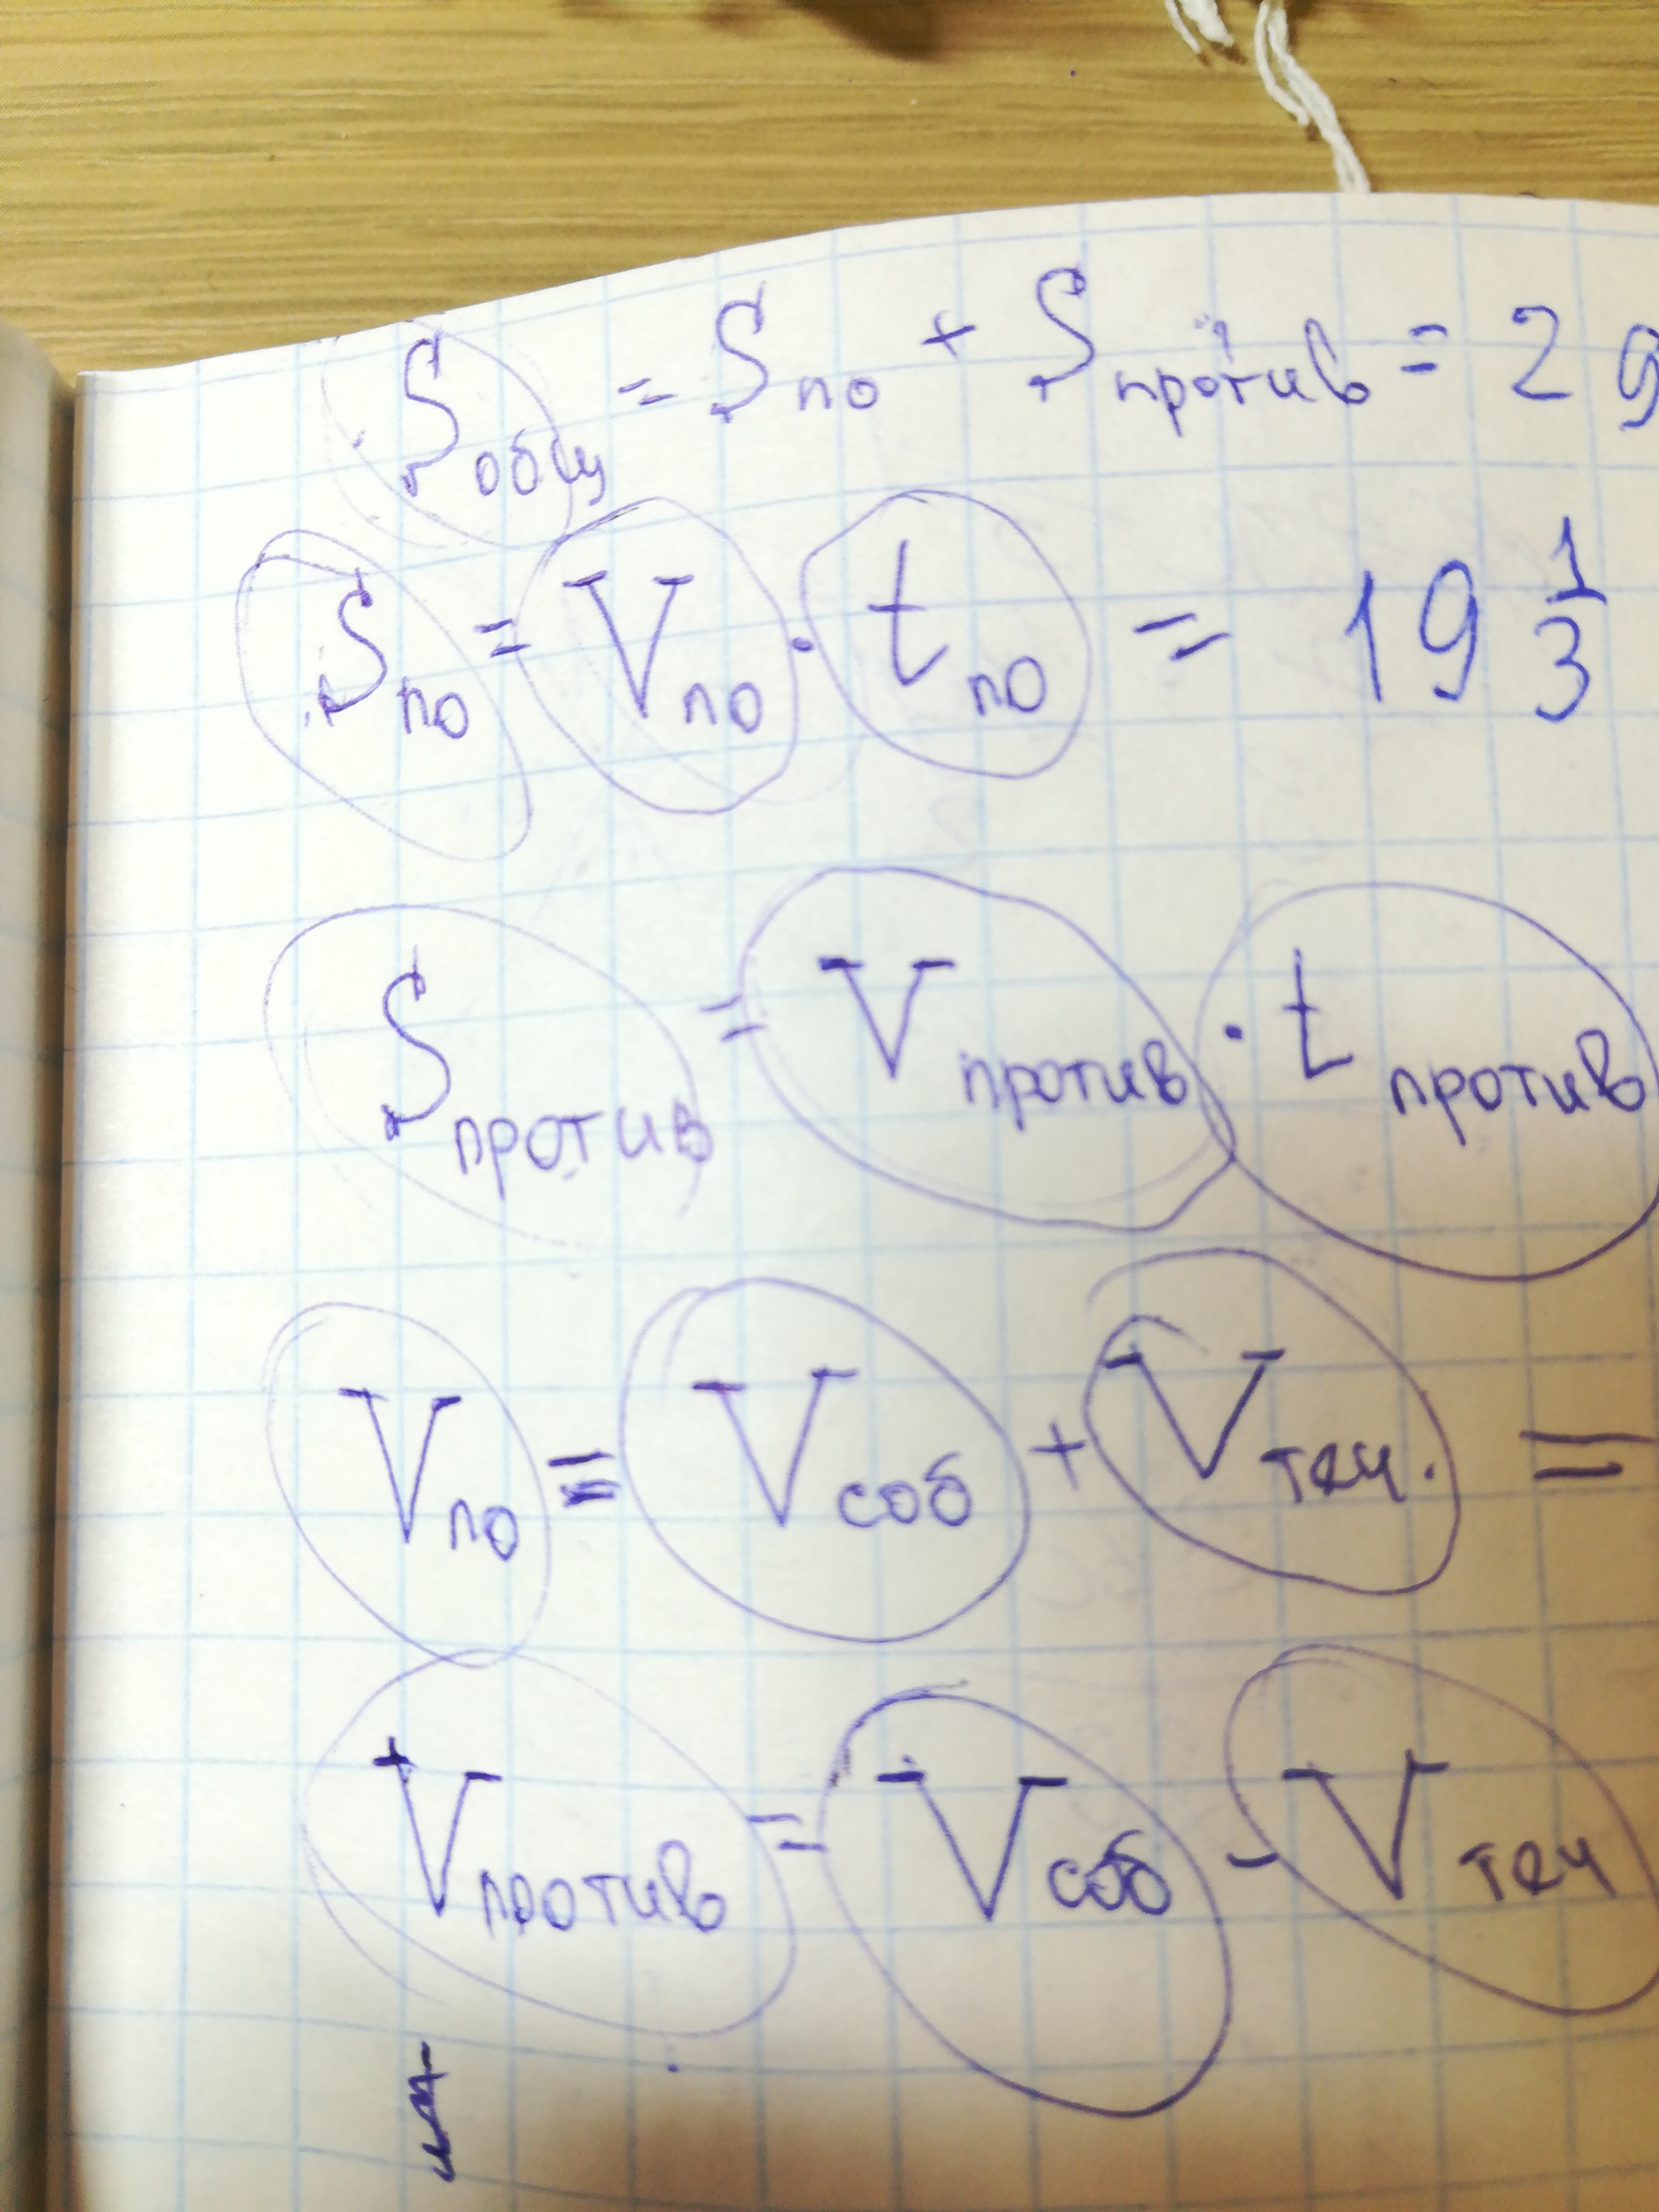 Sобщ = Sпо + Sпротив = 29
Sпо = Vпо · tпо = 19 1/3
Sпротив = Vпротив · tпротив
Vпо = Vсоб + Vтеч. =
Vпротив = Vсоб - Vтеч